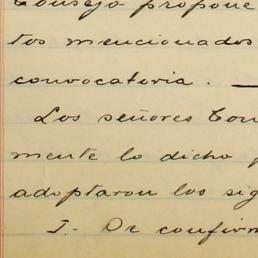 Consejo propone
tos mencionados
convocatoria. —
Los señores Con
mente lo dicho p
adoptaron los sig
I.- De confirm